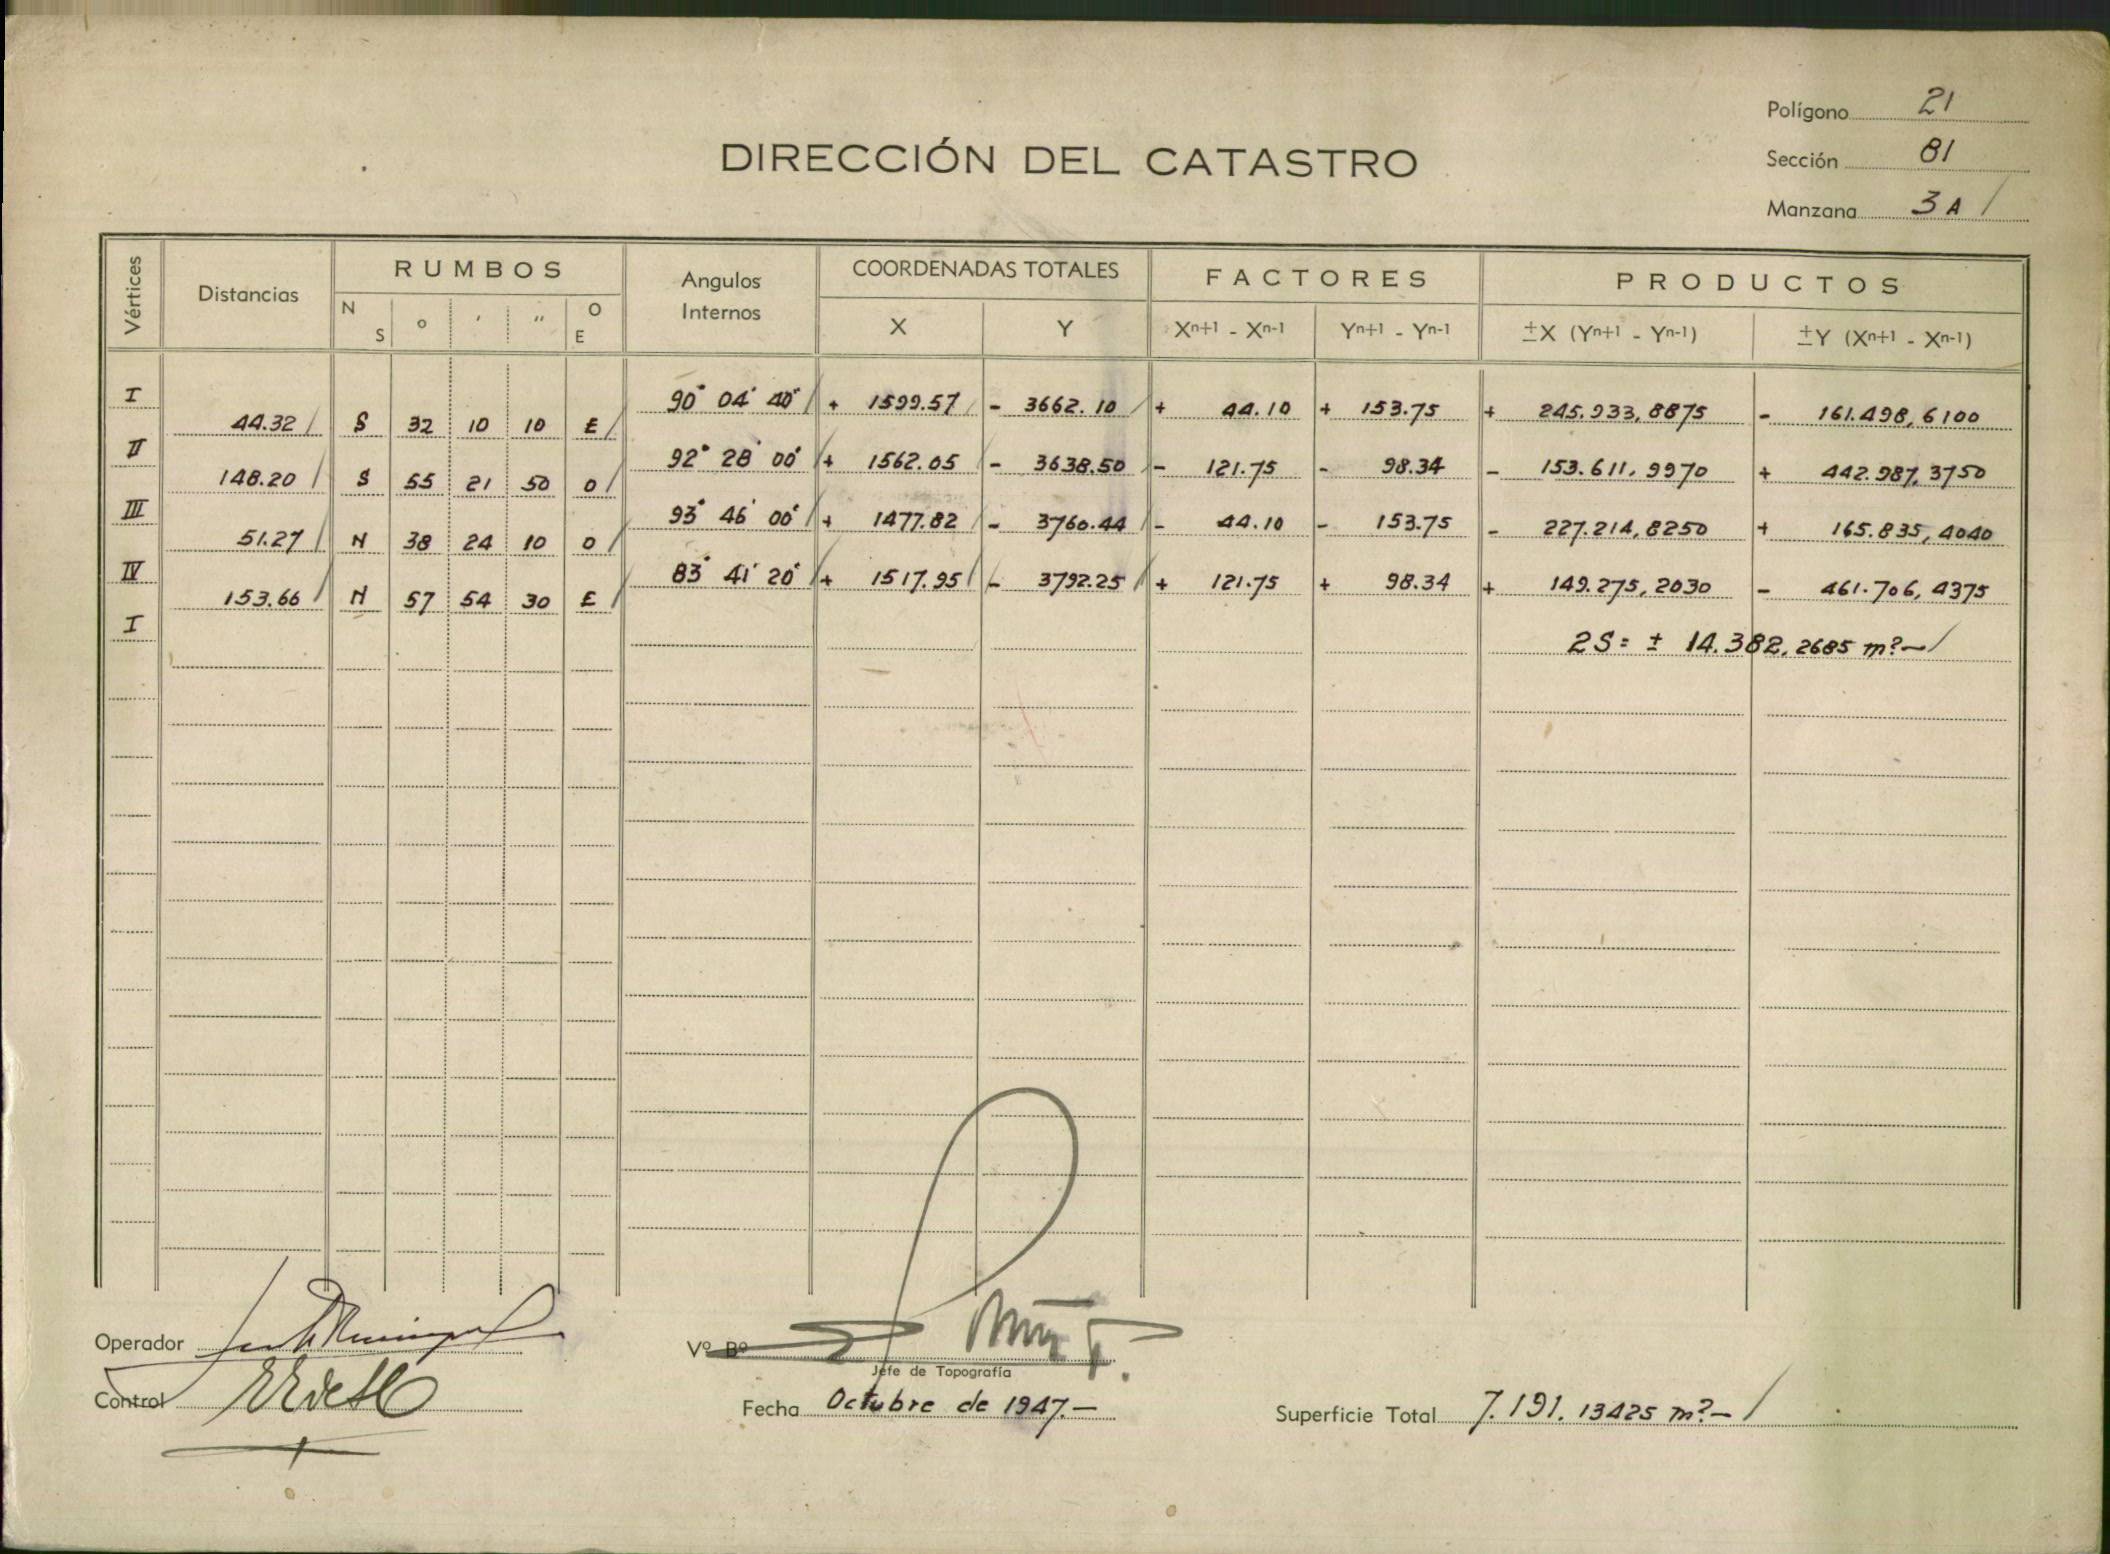 Polígono 21
DIRECCIÓN DEL CATASTRO
Sección 81
Manzana 3A /
Vértices
Distancias
RUMBOS
N S ° ' " O E
Angulos Internos
COORDENADAS TOTALES
X Y
FACTORES
Xn+1 - Xn-1 Yn+1 - Yn-1
PRODUCTOS
±X (Yn+1 - Yn-1) ±Y (Xn+1 - Xn-1)
I 90° 04' 40" / + 1599.57 / - 3662.10 / + 44.10 + 153.75 + 245.933,8875 - 161.498,6100
44.32 / S 32 10 10 E /
II 92° 28' 00" / + 1562.05 / - 3638.50 / - 121.75 - 98.34 - 153.611,9970 + 442.987,3750
148.20 / S 55 21 50 O /
III 93° 46' 00" / + 1477.82 / - 3760.44 / - 44.10 - 153.75 - 227.214,8250 + 165.835,4040
51.27 / N 38 24 10 O /
IV 83° 41' 20" / + 1517.95 / - 3792.25 / + 121.75 + 98.34 + 149.275,2030 - 461.706,4375
153.66 / N 57 54 30 E /
I
2S = ± 14.382,2685 m² - /
Operador
Vº Bº
Jefe de Topografía
Control
Fecha Octubre de 1947.-
Superficie Total 7.191.13425 m² - /